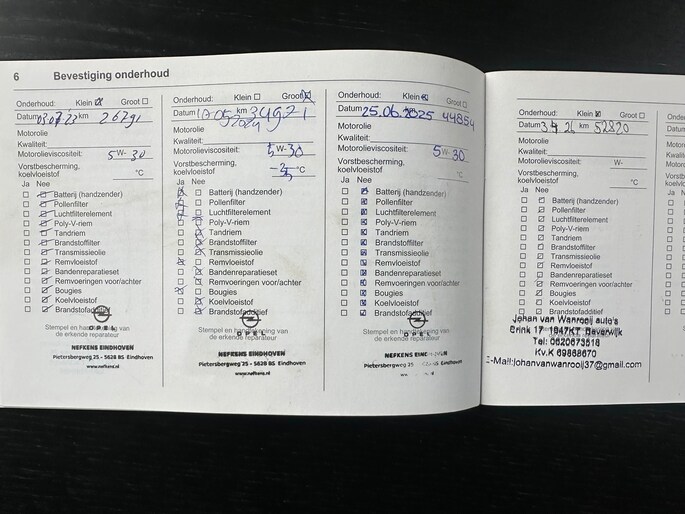 6 Bevestiging onderhoud
Onderhoud: Klein Groot
Datum 03 07 23 km 26791
Motorolie
Kwaliteit:
Motorolieviscositeit: 5 W- 30
Vorstbescherming,
koelvloeistof °C
Ja Nee
Batterij (handzender)
Pollenfilter
Luchtfilterelement
Poly-V-riem
Tandriem
Brandstoffilter
Transmissieolie
Remvloeistof
Bandenreparatieset
Remvoeringen voor/achter
Bougies
Koelvloeistof
Brandstofadditief
OPEL
Stempel en handtekening van
de erkende reparateur
NEFKENS EINDHOVEN
Pietersbergweg 25 - 5628 BS Eindhoven
www.nefkens.nl
Onderhoud: Klein Groot
Datum 17 05 2024 km 34921
Motorolie
Kwaliteit:
Motorolieviscositeit: 5 W- 30
Vorstbescherming,
koelvloeistof °C
Ja Nee
Batterij (handzender)
Pollenfilter
Luchtfilterelement
Poly-V-riem
Tandriem
Brandstoffilter
Transmissieolie
Remvloeistof
Bandenreparatieset
Remvoeringen voor/achter
Bougies
Koelvloeistof
Brandstofadditief
OPEL
Stempel en handtekening van
de erkende reparateur
NEFKENS EINDHOVEN
Pietersbergweg 25 - 5628 BS Eindhoven
www.nefkens.nl
Onderhoud: Klein Groot
Datum 25.06.2025 44854
Motorolie
Kwaliteit:
Motorolieviscositeit: 5 W- 30
Vorstbescherming,
koelvloeistof °C
Ja Nee
Batterij (handzender)
Pollenfilter
Luchtfilterelement
Poly-V-riem
Tandriem
Brandstoffilter
Transmissieolie
Remvloeistof
Bandenreparatieset
Remvoeringen voor/achter
Bougies
Koelvloeistof
Brandstofadditief
OPEL
Stempel en handtekening van
de erkende reparateur
NEFKENS
Pietersbergweg 25 Eindhoven
Onderhoud: Klein Groot
Datum km 52820
Motorolie
Kwaliteit:
Motorolieviscositeit: W-
Vorstbescherming,
koelvloeistof °C
Ja Nee
Batterij (handzender)
Pollenfilter
Luchtfilterelement
Poly-V-riem
Tandriem
Brandstoffilter
Transmissieolie
Remvloeistof
Bandenreparatieset
Remvoeringen voor/achter
Bougies
Koelvloeistof
Brandstofadditief
Johan van Wanrooij auto's
Brink 17 1947KT Beverwijk
Tel: 0620673516
Kv.K 69868670
E-Mail:johanvanwanrooij37@gmail.com
Ond
Datu
Moto
Kwal
Moto
Vors
koelv
Ja